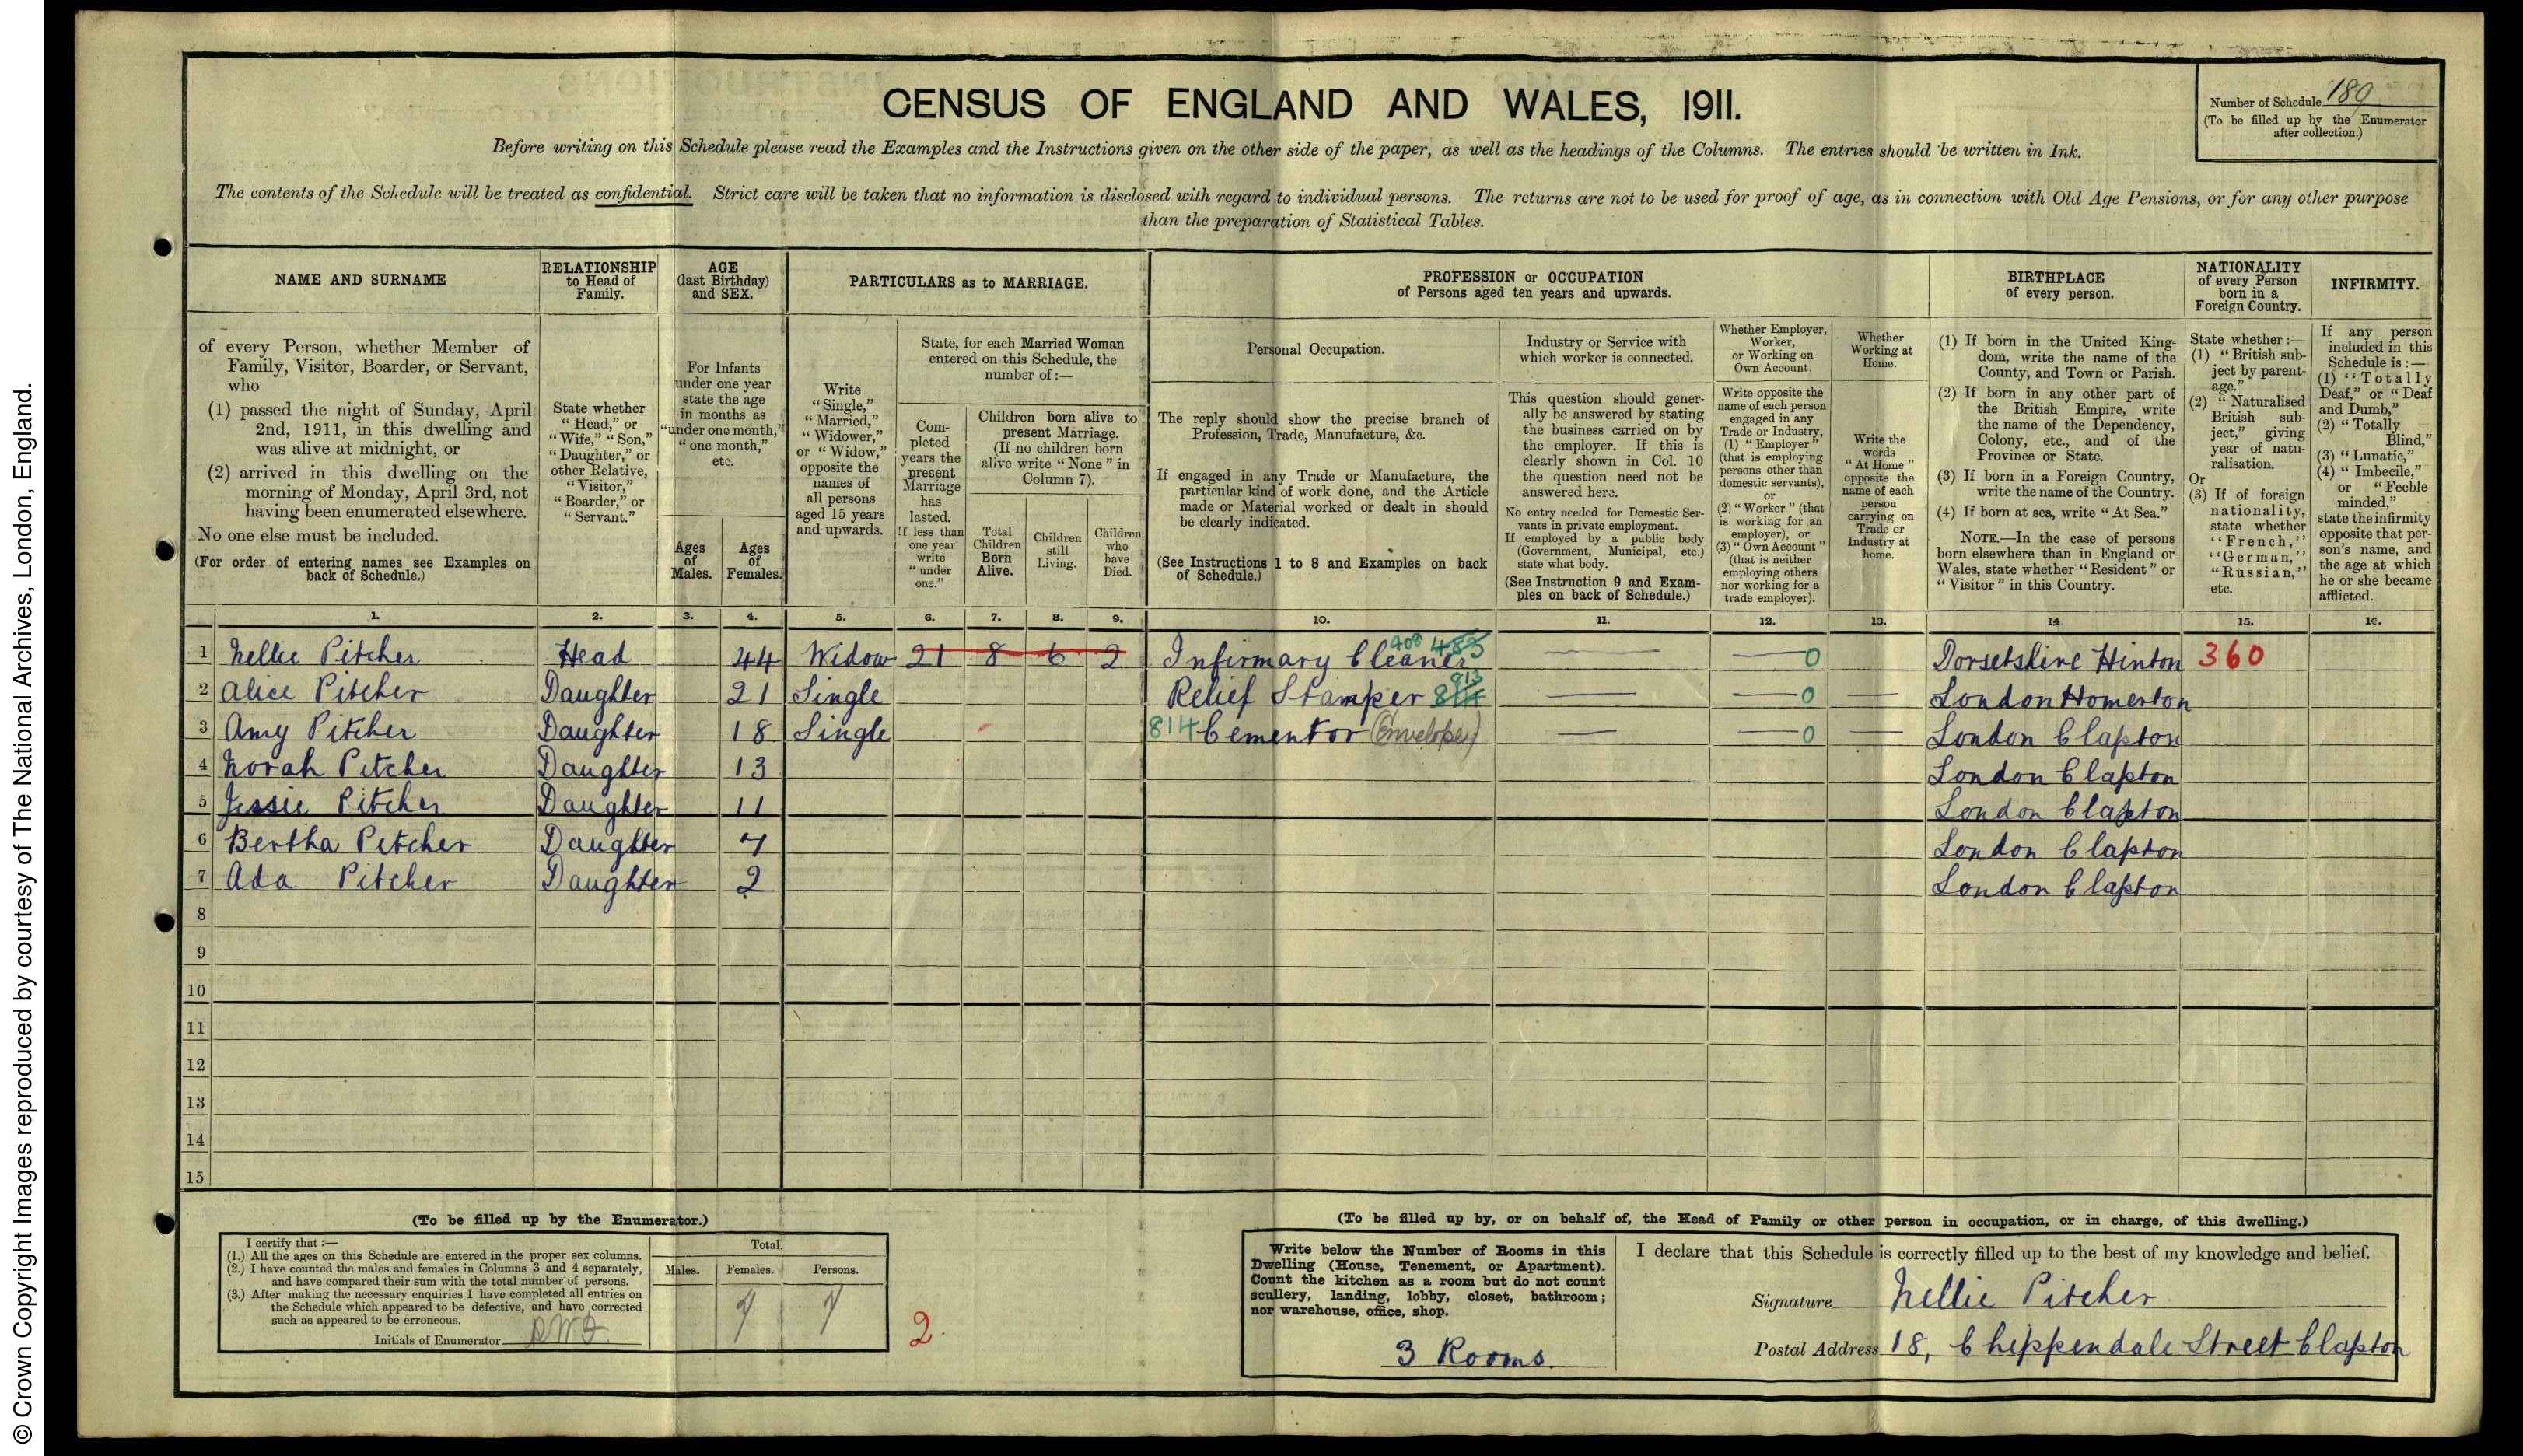 © Crown Copyright Images reproduced by courtesy of The National Archives, London, England.
CENSUS OF ENGLAND AND WALES, 1911.
Number of Schedule 189
(To be filled up by the Enumerator after collection.)
Before writing on this Schedule please read the Examples and the Instructions given on the other side of the paper, as well as the headings of the Columns. The entries should be written in Ink.
The contents of the Schedule will be treated as confidential. Strict care will be taken that no information is disclosed with regard to individual persons. The returns are not to be used for proof of age, as in connection with Old Age Pensions, or for any other purpose
than the preparation of Statistical Tables.
NAME AND SURNAME
RELATIONSHIP
to Head of
Family.
AGE
(last Birthday)
and SEX.
PARTICULARS as to MARRIAGE.
PROFESSION or OCCUPATION
of Persons aged ten years and upwards.
BIRTHPLACE
of every person.
NATIONALITY
of every Person
born in a
Foreign Country.
INFIRMITY.
of every Person, whether Member of
Family, Visitor, Boarder, or Servant,
who
(1) passed the night of Sunday, April
2nd, 1911, in this dwelling and
was alive at midnight, or
(2) arrived in this dwelling on the
morning of Monday, April 3rd, not
having been enumerated elsewhere.
No one else must be included.
(For order of entering names see Examples on
back of Schedule.)
State whether
"Head," or
"Wife," "Son,"
"Daughter," or
other Relative,
"Visitor,"
"Boarder," or
"Servant."
For Infants
under one year
state the age
in months as
"under one month,"
"one month,"
etc.
Ages
of
Males.
Ages
of
Females.
Write
"Single,"
"Married,"
"Widower,"
or "Widow,"
opposite the
names of
all persons
aged 15 years
and upwards.
State, for each Married Woman
entered on this Schedule, the
number of :—
Com-
pleted
years the
present
Marriage
has
lasted.
If less than
one year
write
"under
one."
Children born alive to
present Marriage.
(If no children born
alive write "None" in
Column 7).
Total
Children
Born
Alive.
Children
still
Living.
Children
who
have
Died.
Personal Occupation.
The reply should show the precise branch of
Profession, Trade, Manufacture, &c.
If engaged in any Trade or Manufacture, the
particular kind of work done, and the Article
made or Material worked or dealt in should
be clearly indicated.
(See Instructions 1 to 8 and Examples on back
of Schedule.)
Industry or Service with
which worker is connected.
This question should gener-
ally be answered by stating
the business carried on by
the employer. If this is
clearly shown in Col. 10
the question need not be
answered here.
No entry needed for Domestic Ser-
vants in private employment.
If employed by a public body
(Government, Municipal, etc.)
state what body.
(See Instruction 9 and Exam-
ples on back of Schedule.)
Whether Employer,
Worker,
or Working on
Own Account.
Write opposite the
name of each person
engaged in any
Trade or Industry,
(1) "Employer"
(that is employing
persons other than
domestic servants),
or
(2) "Worker" (that
is working for an
employer), or
(3) "Own Account"
(that is neither
employing others
nor working for a
trade employer).
Whether
Working at
Home.
Write the
words
"At Home"
opposite the
name of each
person
carrying on
Trade or
Industry at
home.
(1) If born in the United King-
dom, write the name of the
County, and Town or Parish.
(2) If born in any other part of
the British Empire, write
the name of the Dependency,
Colony, etc., and of the
Province or State.
(3) If born in a Foreign Country,
write the name of the Country.
(4) If born at sea, write "At Sea."
NOTE.—In the case of persons
born elsewhere than in England or
Wales, state whether "Resident" or
"Visitor" in this Country.
State whether :—
(1) "British sub-
ject by parent-
age."
(2) "Naturalised
British sub-
ject," giving
year of natu-
ralisation.
Or
(3) If of foreign
nationality,
state whether
"French,"
"German,"
"Russian,"
etc.
If any person
included in this
Schedule is :—
(1) "Totally
Deaf," or "Deaf
and Dumb,"
(2) "Totally
Blind,"
(3) "Lunatic,"
(4) "Imbecile,"
or "Feeble-
minded,"
state the infirmity
opposite that per-
son's name, and
the age at which
he or she became
afflicted.
1. 2. 3. 4. 5. 6. 7. 8. 9. 10. 11. 12. 13. 14 15. 16.
1 Nellie Pitcher Head 44 Widow 21 8 6 2 Infirmary Cleaner 400 483 — — 0 Dorsetshire Hinton 360
2 Alice Pitcher Daughter 21 Single Relief Stamper 913 — — 0 — London Homerton
3 Amy Pitcher Daughter 18 Single 814 Cementor (Envelopes) — — 0 — London Clapton
4 Norah Pitcher Daughter 13 London Clapton
5 Jessie Pitcher Daughter 11 London Clapton
6 Bertha Pitcher Daughter 7 London Clapton
7 Ada Pitcher Daughter 2 London Clapton
8
9
10
11
12
13
14
15
(To be filled up by the Enumerator.)
I certify that :—
(1.) All the ages on this Schedule are entered in the proper sex columns.
(2.) I have counted the males and females in Columns 3 and 4 separately,
and have compared their sum with the total number of persons.
(3.) After making the necessary enquiries I have completed all entries on
the Schedule which appeared to be defective, and have corrected
such as appeared to be erroneous.
Initials of Enumerator
Total.
Males. Females. Persons.
7 7
2
(To be filled up by, or on behalf of, the Head of Family or other person in occupation, or in charge, of this dwelling.)
Write below the Number of Rooms in this
Dwelling (House, Tenement, or Apartment).
Count the kitchen as a room but do not count
scullery, landing, lobby, closet, bathroom;
nor warehouse, office, shop.
3 Rooms
I declare that this Schedule is correctly filled up to the best of my knowledge and belief.
Signature Nellie Pitcher
Postal Address 18, Chippendale Street Clapton